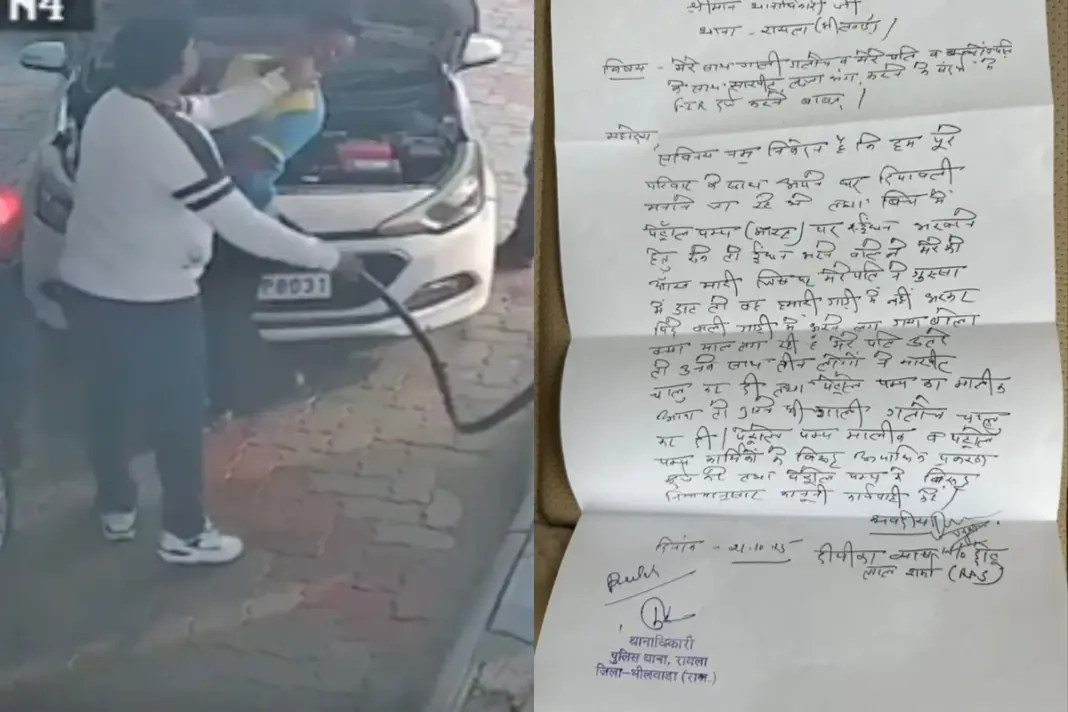 N4
P8031
श्रीमान थानाधिकारी जी
थाना - रायला (भीलवाड़ा)
विषय - मेरे साथ गाली गलौच व मेरे पति व
के साथ मारपीट करने के संदर्भ में
FIR दर्ज करने बाबत्।
महोदय,
सविनय नम्र निवेदन है कि हम पूरे
परिवार के साथ अपने घर दिपावली
मनाने जा रहे थे तथा बिच में
पेट्रोल पम्प पर ईंधन भरवाने
हेतु रुके तो ईंधन भरने वाले ने मेरे को
आँख मारी जिस पर मेरे पति ने गुस्सा
में डाट तो वह हमारी गाड़ी में नहीं भरकर
पिछे वाली गाड़ी में भरने लग गया बोला
क्या माल लग रही है मेरे पति उतरे
तो उनके साथ तीन लोगों ने मारपीट
चालु कर दी तथा पेट्रोल पम्प का मालीक
आया तो उसने भी गाली गलौच चालु
कर दी। पेट्रोल पम्प मालीक व पेट्रोल
पम्प कार्मिकों के विरुद्ध प्रकरण
दर्ज करे तथा पेट्रोल पम्प के विरुद्ध
नियमानुसार कानूनी कार्यवाही करे।
दिनांक - 21.10.25
दीपीका व्यास W/o छोटू
लाल शर्मा (RAS)
थानाधिकारी
पुलिस थाना, रायला
जिला-भीलवाडा (राज.)